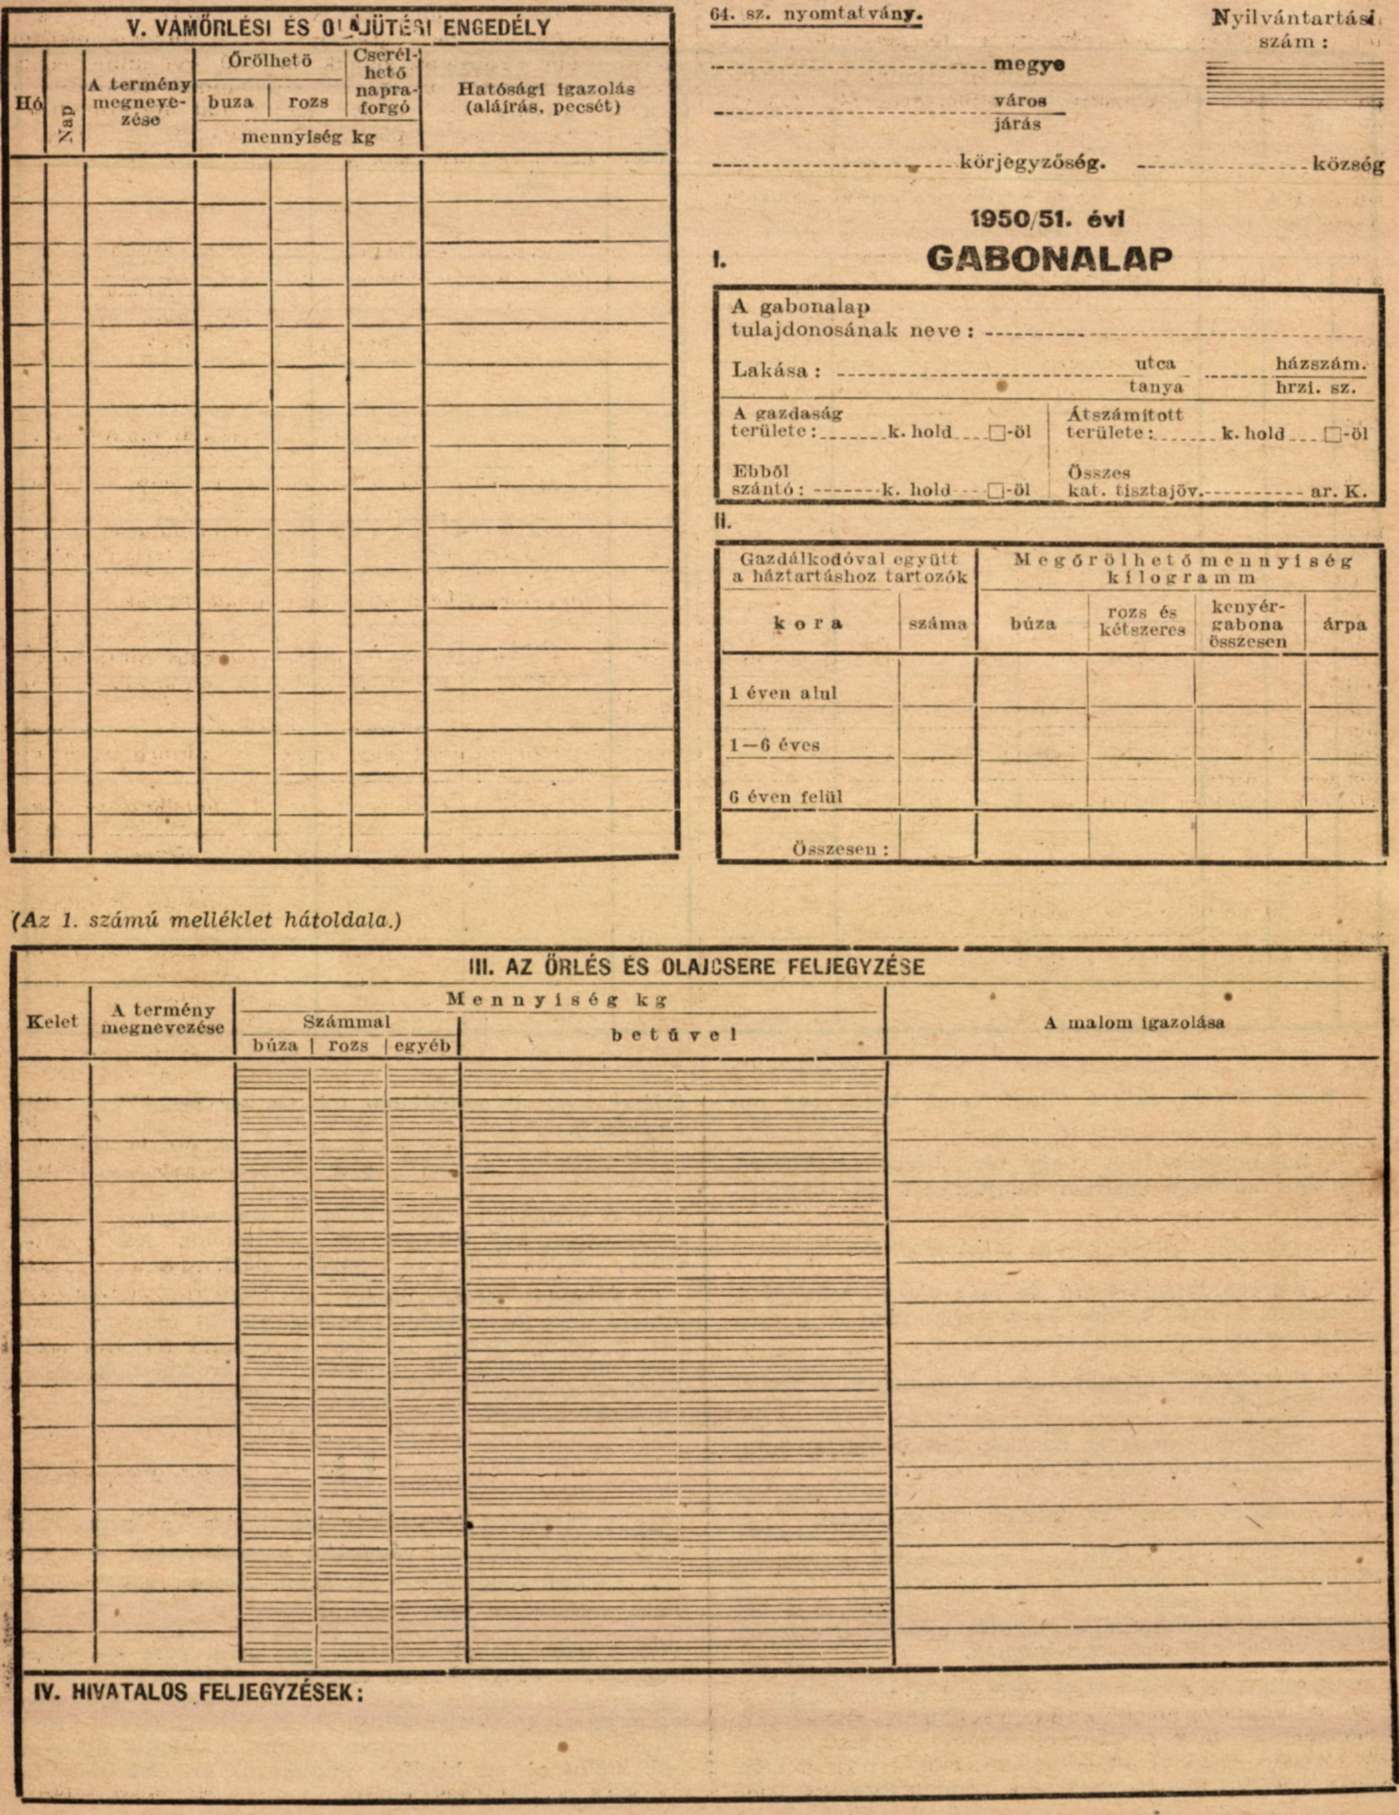 V. VÁMŐRLÉSI ÉS OLAJÜTÉSI ENGEDÉLY
Hó
Nap
A termény
megneve-
zése
Őrölhető
buza
rozs
Cserél-
hető
napra-
forgó
mennyiség kg
Hatósági igazolás
(aláírás, pecsét)
64. sz. nyomtatvány.
Nyilvántartási
szám :
megye
város
járás
körjegyzőség.
község
1950/51. évi
I.
GABONALAP
A gabonalap
tulajdonosának neve :
Lakása :
utca
tanya
házszám.
hrzi. sz.
A gazdaság
területe : k. hold □-öl
Átszámított
területe : k. hold □-öl
Ebből
szántó : k. hold □-öl
Összes
kat. tisztajöv. ar. K.
II.
Gazdálkodóval együtt
a háztartáshoz tartozók
Megőrölhető mennyiség
kilogramm
kora
száma
búza
rozs és
kétszeres
kenyér-
gabona
összesen
árpa
1 éven alul
1—6 éves
6 éven felül
Összesen :
(Az 1. számú melléklet hátoldala.)
III. AZ ŐRLÉS ÉS OLAJCSERE FELJEGYZÉSE
Kelet
A termény
megnevezése
Mennyiség kg
Számmal
búza | rozs | egyéb
betűvel
A malom igazolása
IV. HIVATALOS FELJEGYZÉSEK :